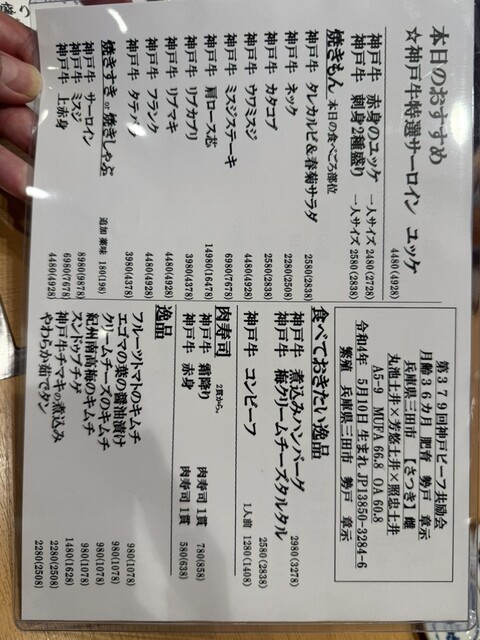 本日のおすすめ
☆神戸牛特選サーロイン ユッケ 4480(4928)
神戸牛 赤身のユッケ 一人サイズ 2480(2728)
神戸牛 刺身2種盛り 一人サイズ 2580(2838)
焼きもん 本日の食べごろ部位
神戸牛 タレカルビ&春菊サラダ 2580(2838)
神戸牛 ネック 2280(2508)
神戸牛 カタコブ 2580(2838)
神戸牛 ウワミスジ 4480(4928)
神戸牛 ミスジステーキ 6980(7678)
神戸牛 肩ロース芯 14980(16478)
神戸牛 リブカブリ 3980(4378)
神戸牛 リブマキ 4480(4928)
神戸牛 フランク 4480(4928)
神戸牛 タテバラ 3980(4378)
焼きすき or 焼きしゃぶ 追加 薬味 180(198)
神戸牛 サーロイン 8980(9878)
神戸牛 ミスジ 6980(7678)
神戸牛 上赤身 4480(4928)
第379回神戸ビーフ共励会
月齢36カ月 肥育 勢戸 章示
兵庫県三田市 【さつき】雌
丸池土井×芳悠土井×照忠土井
A5-9 MUFA 66.8 OA 60.8
令和4年 5月10日 生まれ JP13850-3284-6
繁殖 兵庫県三田市 勢戸 章示
食べておきたい逸品
神戸牛 煮込みハンバーグ 2980(3278)
神戸牛 梅クリームチーズタルタル 2580(2838)
神戸牛 コンビーフ 1人前 1280(1408)
肉寿司 2貫から。
神戸牛 霜降り 肉寿司 1貫 780(858)
神戸牛 赤身 肉寿司 1貫 580(638)
逸品
フルーツトマトのキムチ 980(1078)
エゴマの葉の醤油漬け 980(1078)
クリームチーズのキムチ 980(1078)
紀州南高梅のキムチ 980(1078)
スンドゥブチゲ 1480(1628)
神戸牛チマキの煮込み 2280(2508)
やわらか茹でタン 2280(2508)